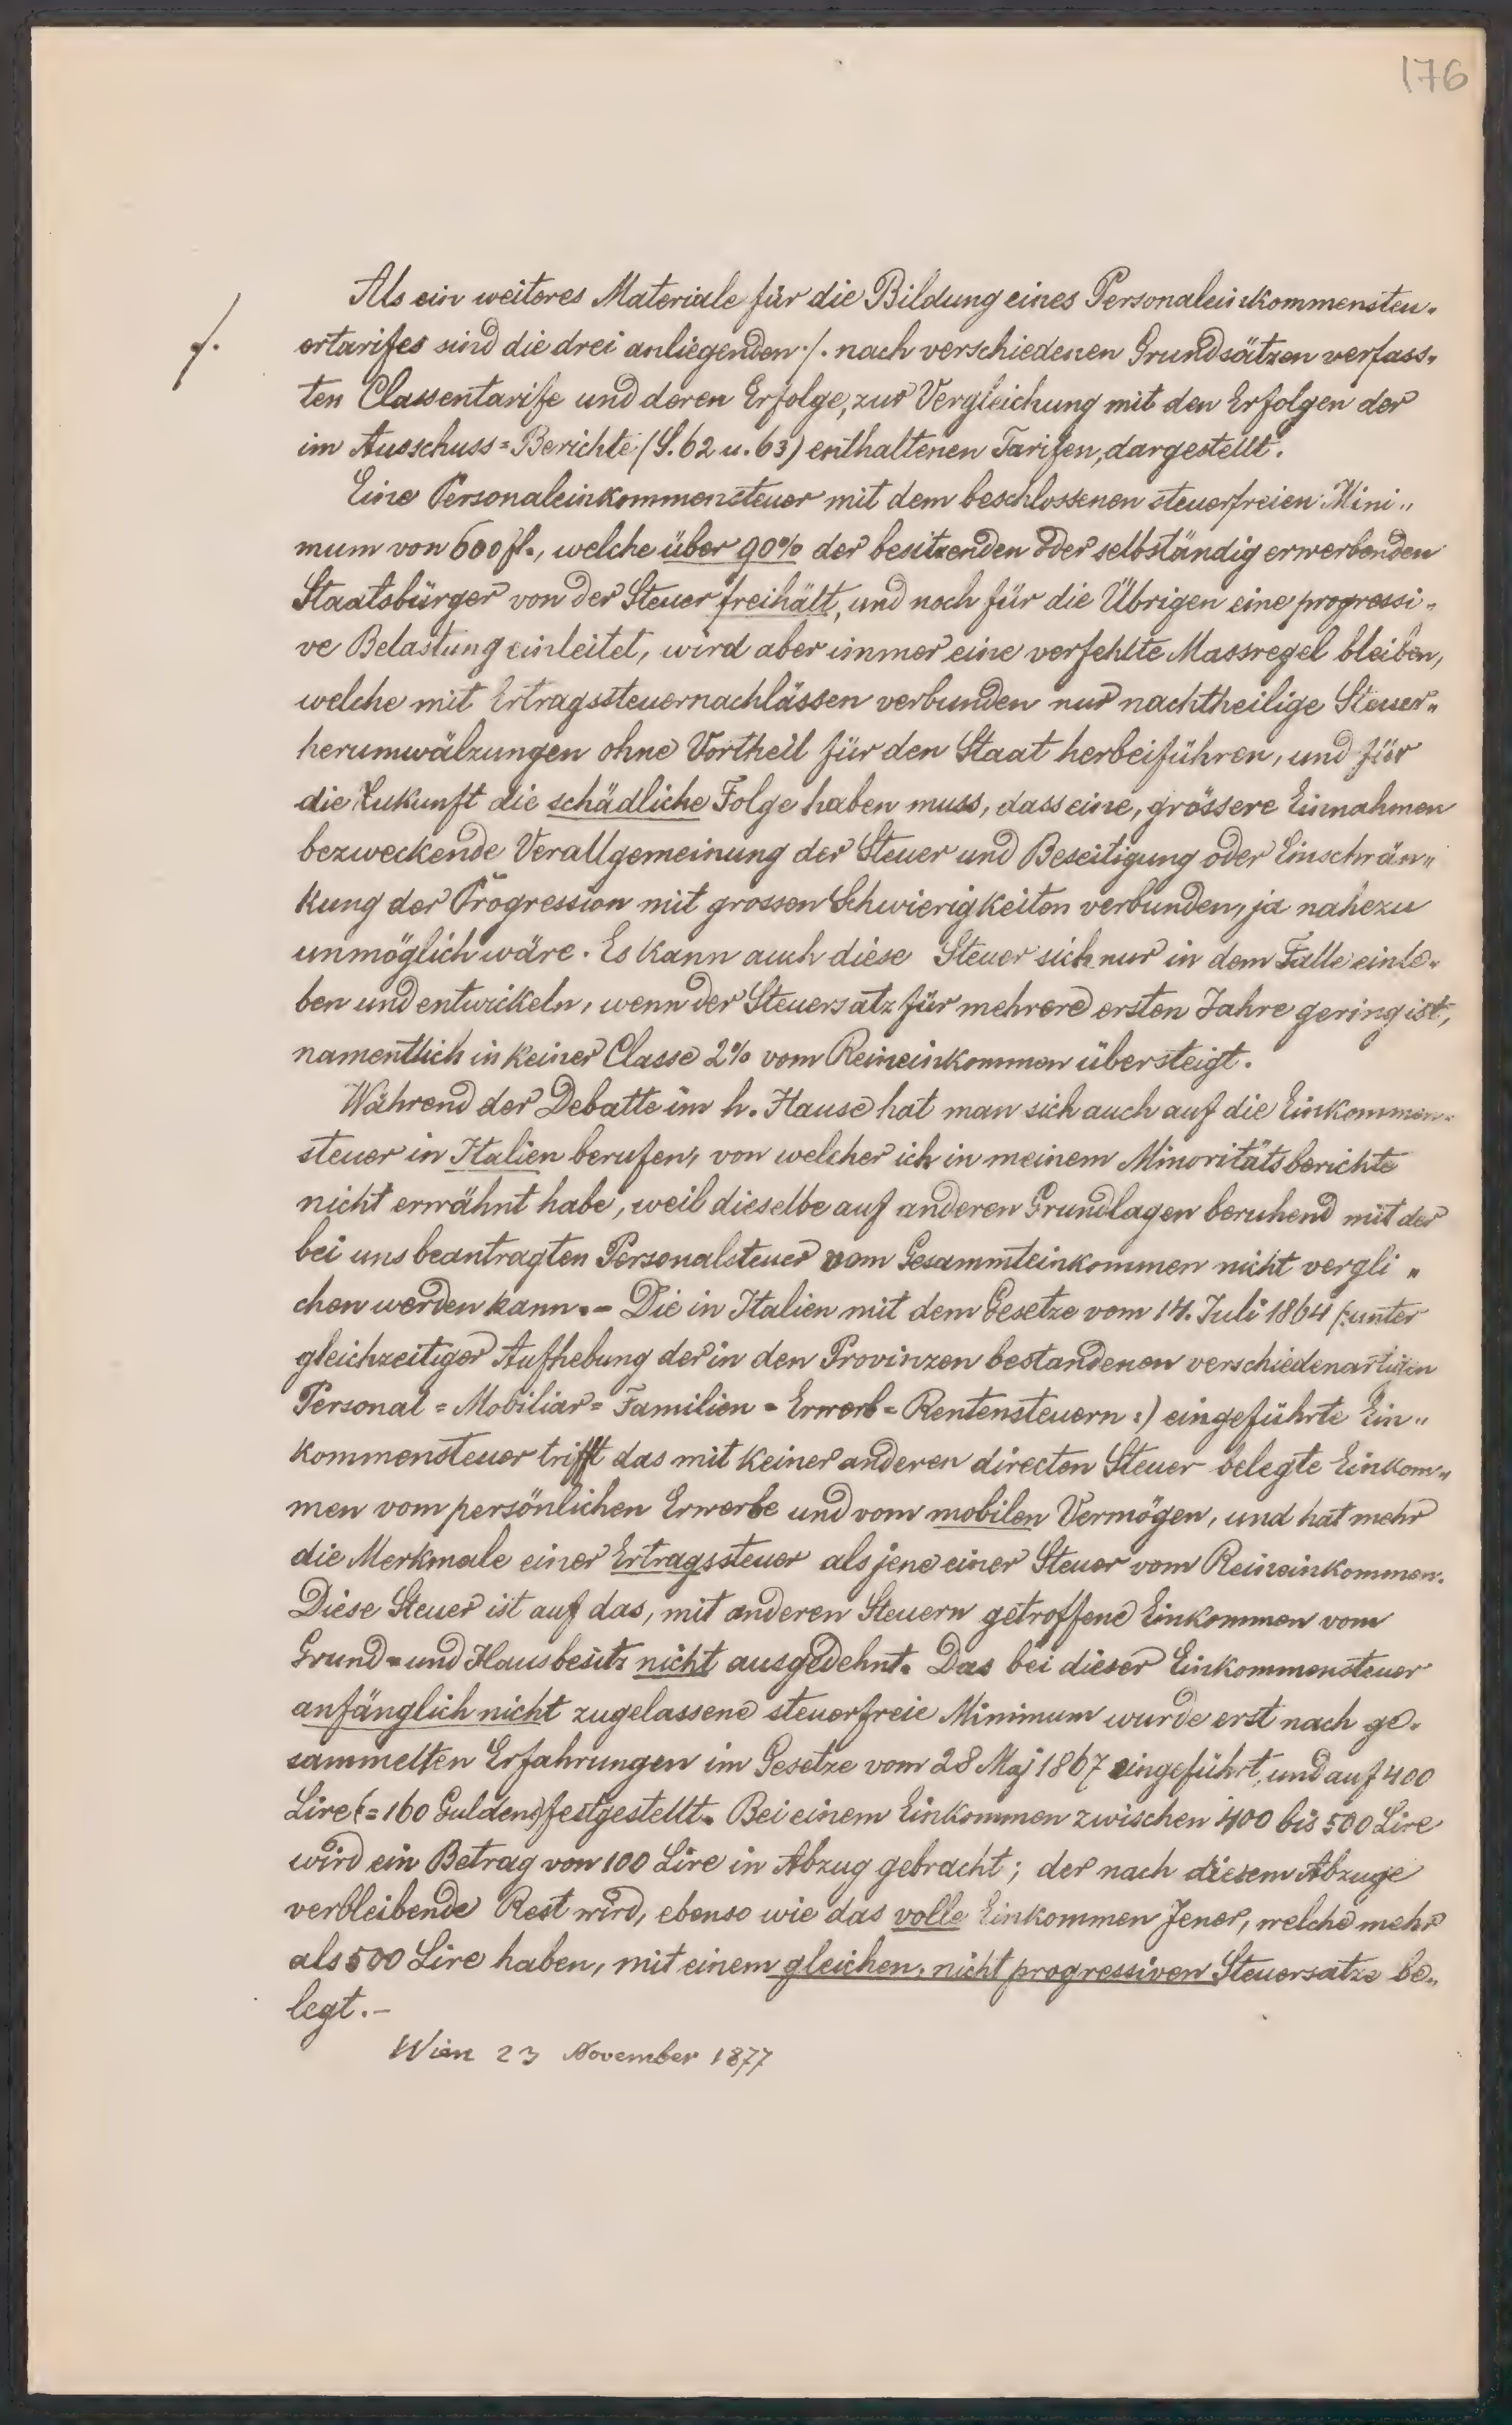 176
Als ein weiteres Materiale für die Bildung eines Personaleinkommensteu-
ertarifes sind die drei anliegenden ./. nach verschiedenen Grundsätzen verfass-
./.
ten Classentarife und deren Erfolge, zur Vergleichung mit den Erfolgen der
im Ausschuss=Berichte (S. 62 u. 63) enthaltenen Tarifen, dargestellt.
Eine Personaleinkommensteuer mit dem beschlossenen steuerfreien Mini„
mum von 600 fl., welche über 90% der besitzenden oder selbständig erwerbenden
Staatsbürger von der Steuer freihält, und noch für die Übrigen eine progressi-
ve Belastung einleitet, wird aber immer eine verfehlte Massregel bleiben,
welche mit Ertragssteuernachlässen verbunden nur nachtheilige Steuer„
herumwälzungen ohne Vortheil für den Staat herbeiführen, und für
die Zukunft die schädliche Folge haben muss, dass eine, grössere Einnahmen
bezweckende Verallgemeinung der Steuer und Beseitigung oder Einschrän„
kung der Progression mit grossen Schwierigkeiten verbunden, ja nahezu
unmöglich wäre. Es kann auch diese Steuer sich nur in dem Falle einle-
ben und entwickeln, wenn der Steuersatz für mehrere ersten Jahre gering ist,
namentlich in keiner Classe 2% vom Reineinkommen übersteigt.
Während der Debatte im h. Hause hat man sich auch auf die Einkommen-
steuer in Italien berufen, von welcher ich in meinem Minoritätsberichte
nicht erwähnt habe, weil dieselbe auf anderen Grundlagen beruhend mit der
bei uns beantragten Personalsteuer vom Gesammteinkommen nicht vergli„
chen werden kann. – Die in Italien mit dem Gesetze vom 14. Juli 1864 (:unter
gleichzeitiger Aufhebung der in den Provinzen bestandenen verschiedenartigen
Personal=Mobiliar=Familien=Erwerb=Rentensteuern:) eingeführte Ein„
kommensteuer trifft das mit keiner anderen directen Steuer belegte Einkom„
men vom persönlichen Erwerbe und vom mobilen Vermögen, und hat mehr
die Merkmale einer Ertragssteuer als jene einer Steuer vom Reineinkommen.
Diese Steuer ist auf das, mit anderen Steuern getroffene Einkommen vom
Grund=und Hausbesitz nicht ausgedehnt. Das bei dieser Einkommensteuer
anfänglich nicht zugelassene steuerfreie Minimum wurde erst nach ge-
sammelten Erfahrungen im Gesetze vom 28 Maj 1867 eingeführt, und auf 400
Lire (=160 Gulden) festgestellt. Bei einem Einkommen zwischen 400 bis 500 Lire
wird ein Betrag von 100 Lire in Abzug gebracht; der nach diesem Abzuge
verbleibende Rest wird, ebenso wie das volle Einkommen Jener, welche mehr
als 500 Lire haben, mit einem gleichen, nicht progressiven Steuersatze be„
legt. –
Wien 23 November 1877